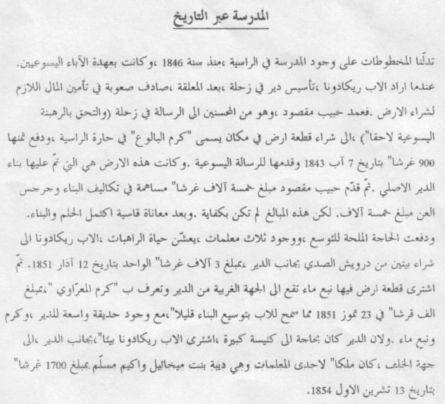 المدرسة عبر التاريخ
تدلّنا المخطوطات على وجود المدرسة في الراسية ،منذ سنة 1846 ،وكانت بعهدة الآباء اليسوعيين.
عندما اراد الاب ريكادونا، تأسيس دير في زحلة ،بعد المعلقة ،صادف صعوبة في تأمين المال اللازم
لشراء الارض .فعمد حبيب مقصود ،وهو من المحسنين الى الرسالة في زحلة (والتحق بالرهبنة
اليسوعية لاحقا") ،الى شراء قطعة ارض في مكان يسمى "كرم البالوع" في حارة الراسية ،ودفع ثمنها
900 غرشا" بتاريخ 7 آب 1843 وقدمها للرسالة اليسوعية .وكانت هذه الارض هي التي تمّ عليها بناء
الدير الاصلي .ثمّ قدّم حبيب مقصود مبلغ خمسة آلاف غرشا" مساهمة في تكاليف البناء وجرجس
العن مبلغ خمسة آلاف. لكن هذه المبالغ لم تكن بكفاية .وبعد معاناة قاسية اكتمل الحلم والبناء.
ودفعت الحاجة الملحة للتوسع ،ووجود ثلاث معلمات ،يعشن حياة الراهبات ،الاب ريكادونا الى
شراء بيتين من درويش الصدي بجانب الدير ،بمبلغ 3 آلاف غرشا" الواحد بتاريخ 12 آذار 1851. ثمّ
اشترى قطعة ارض فيها نبع ماء تقع الى الجهة الغربية من الدير وتعرف ب "كرم المعرّاوي" ،بمبلغ
الف قرشا" في 23 تموز 1851 مما سمح للاب بتوسيع البناء قليلا"،مع وجود حديقة واسعة للدير ،وكرم
ونبع ماء .ولان الدير كان بحاجة الى كنيسة كبيرة ،اشترى الاب ريكادونا بيتا"،بجانب الدير ،الى
جهة الخلف ،كان ملكا" لاحدى المعلمات وهي ديبة بنت ميخائيل واكيم مسلّم بمبلغ 1700 غرشا"
بتاريخ 13 تشرين الاول 1854.